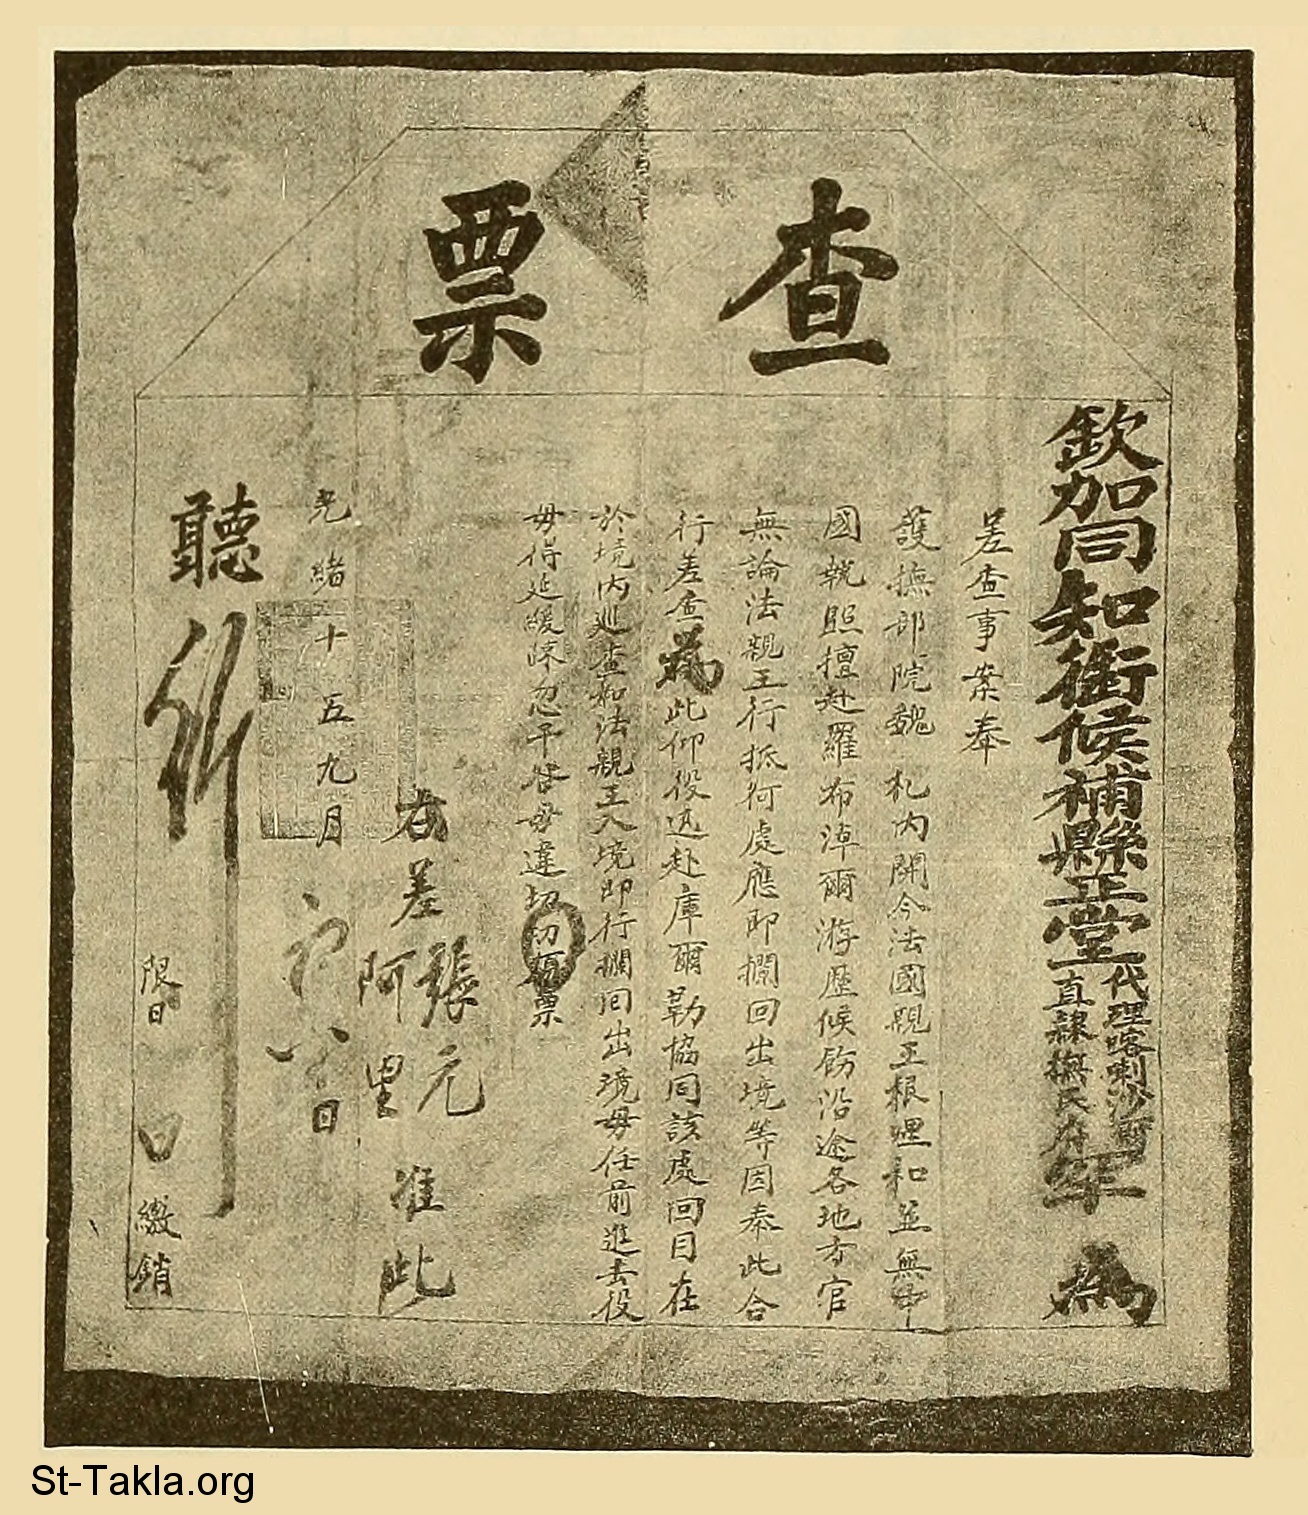 查票
欽加同知銜候補縣正堂代理喀喇沙爾直隸撫民府 為
差查事案奉
護撫部院魏 札內開今法國親王根哩和並無中
國執照擅赴羅布淖爾游歷候飭沿途各地方官
無論法親王行抵何處應即攔回出境等因奉此合
行差查為此仰役迅赴庫爾勒協同該處回目在
於境內巡查如法親王入境即行攔回出境毋任前進去役
毋得延緩悚忽干咎毋違切切須票
右差張元 阿里 准此
光緒十五 九月 日
聽
限 日 繳銷
St-Takla.org